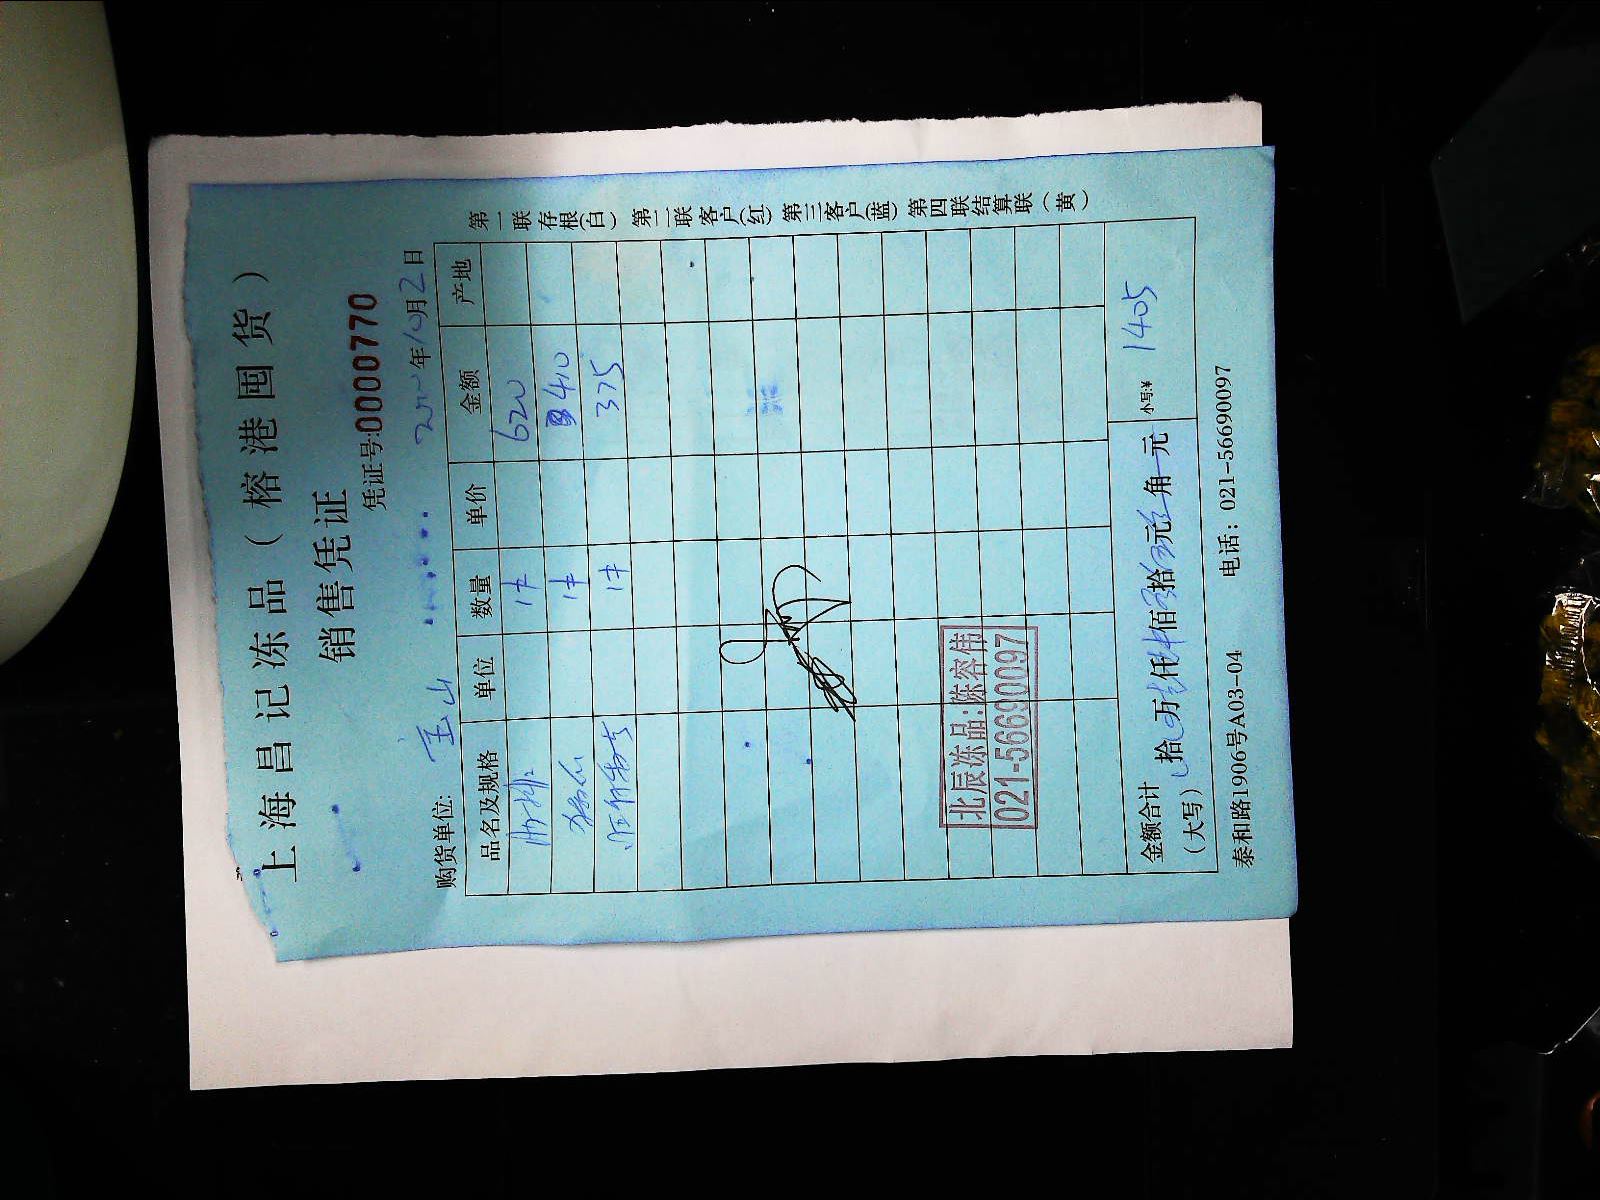 上海昌记冻品（榕港囤货）
销售凭证
凭证号:0000770
购货单位: 宝山 年10月2日
品名及规格 单位 数量 单价 金额 产地
1件 620
1件 410
1件 375
北辰冻品:陈容伟
021-56690097
金额合计（大写） 拾 万 仟 佰 拾 元 角 元 小写:¥ 1405
泰和路1906号A03-04 电话：021-56690097
第一联存根(白) 第二联客户(红) 第三客户(蓝) 第四联结算联（黄）